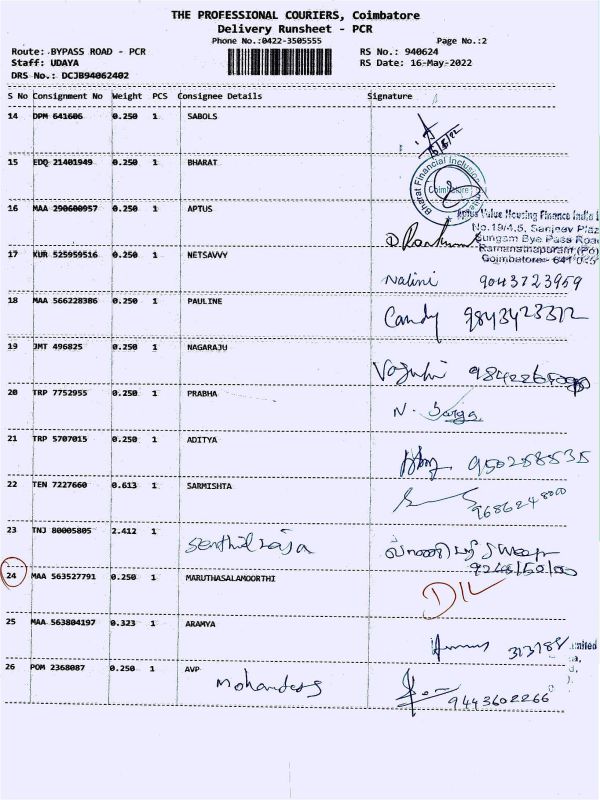 THE PROFESSIONAL COURIERS, Coimbatore
Delivery Runsheet - PCR
Phone No.:0422-3505555 Page No.:2
Route: BYPASS ROAD - PCR RS No.: 940624
Staff: UDAYA RS Date: 16-May-2022
DRS No.: DCJB94062402
S No Consignment No Weight PCS Consignee Details Signature
14 DPM 641606 0.250 1 SABOLS
15 EDQ 21401949 0.250 1 BHARAT
Bharat Financial Inclusion
Coimbatore
16 MAA 290600957 0.250 1 APTUS
Aptus Value Housing Finance India
No.19/4,5, Sanjeev Plaz
Sungam Bye Pass Road
Ramanathapuram (Po)
Coimbatore- 641 045
17 KUR 525959516 0.250 1 NETSAVVY
Nalini 9043723959
18 MAA 566228386 0.250 1 PAULINE
Candy 9843423312
19 JMT 496825 0.250 1 NAGARAJU
20 TRP 7752955 0.250 1 PRABHA
N.
21 TRP 5707015 0.250 1 ADITYA
9502585535
22 TEN 7227660 0.613 1 SARMISHTA
23 TNJ 80005805 2.412 1 Senthil raja
24 MAA 563527791 0.250 1 MARUTHASALAMOORTHI
D/L
25 MAA 563804197 0.323 1 ARAMYA
26 POM 2368087 0.250 1 AVP
Mohandass 9443602266